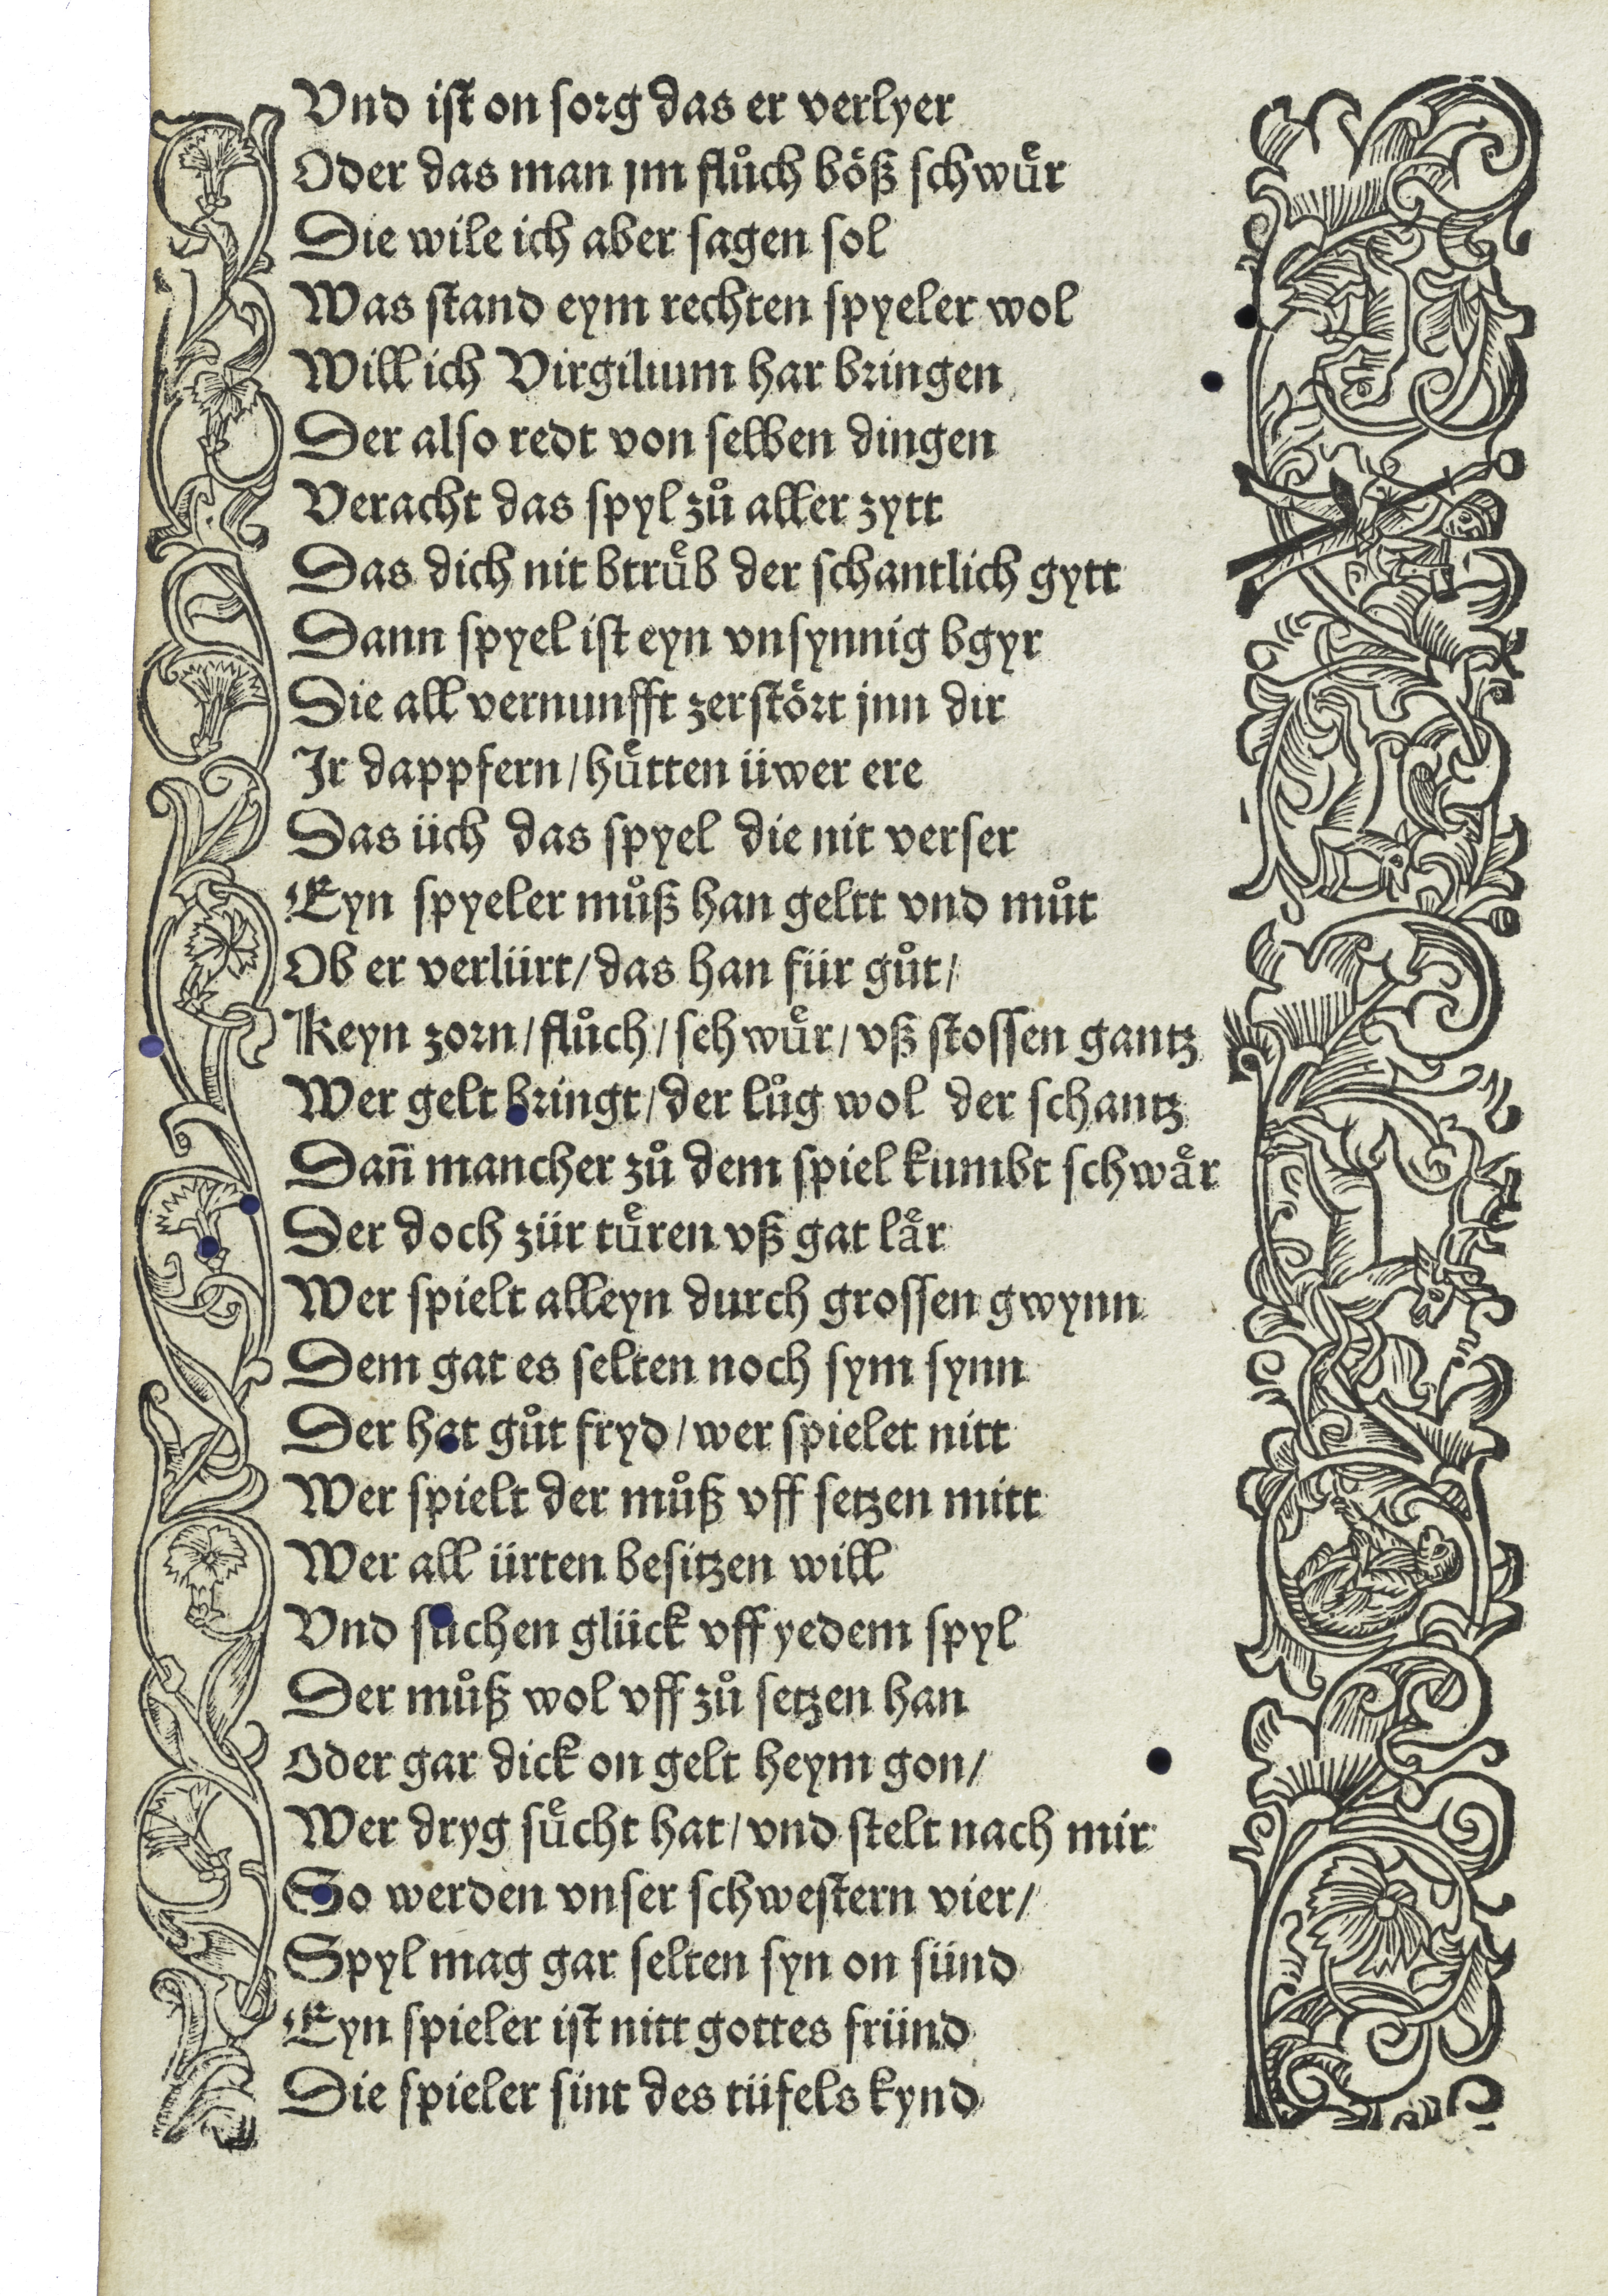 Vnd iſt on ſorg das er verlyer
Oder das man jm flůch bôß ſchwuͤr
Die wile ich aber ſagen ſol
Was ſtand eym rechten ſpyeler wol
Will ich Virgilium har bringen
Der alſo redt von ſelben dingen
Veracht das ſpyl zů aller zytt
Das dich nit btruͤb der ſchantlich gytt
Dann ſpyel iſt eyn vnſynnig bgyr
Die all vernunfft zerſtoͤrt jnn dir
Ir dappfern / huͤtten üwer ere
Das üch das ſpyel die nit verſer
Eyn ſpyeler můß han geltt vnd můt
Ob er verlürt / das han für gůt /
Keyn zorn / flůch / ſehwuͤr / vß ſtoſſen gantz
Wer gelt bringt / der lůg wol der ſchantz
Dañ mancher zů dem ſpiel kumbt ſchwaͤr
Der doch zür tuͤren vß gat laͤr
Wer ſpielt alleyn durch groſſen gwynn
Dem gat es ſelten noch ſym ſynn
Der hat gůt fryd / wer ſpielet nitt
Wer ſpielt der můß vff ſetzen mitt
Wer all ürten beſitzen will
Vnd ſůchen glück vff yedem ſpyl
Der můß wol vff zů ſetzen han
Oder gar dick on gelt heym gon /
Wer dryg ſuͤcht hat / vnd ſtelt nach mir
So werden vnſer ſchweſtern vier /
Spyl mag gar ſelten ſyn on ſünd
Eyn ſpieler iſt nitt gottes fründ
Die ſpieler ſint des tüfels kynd